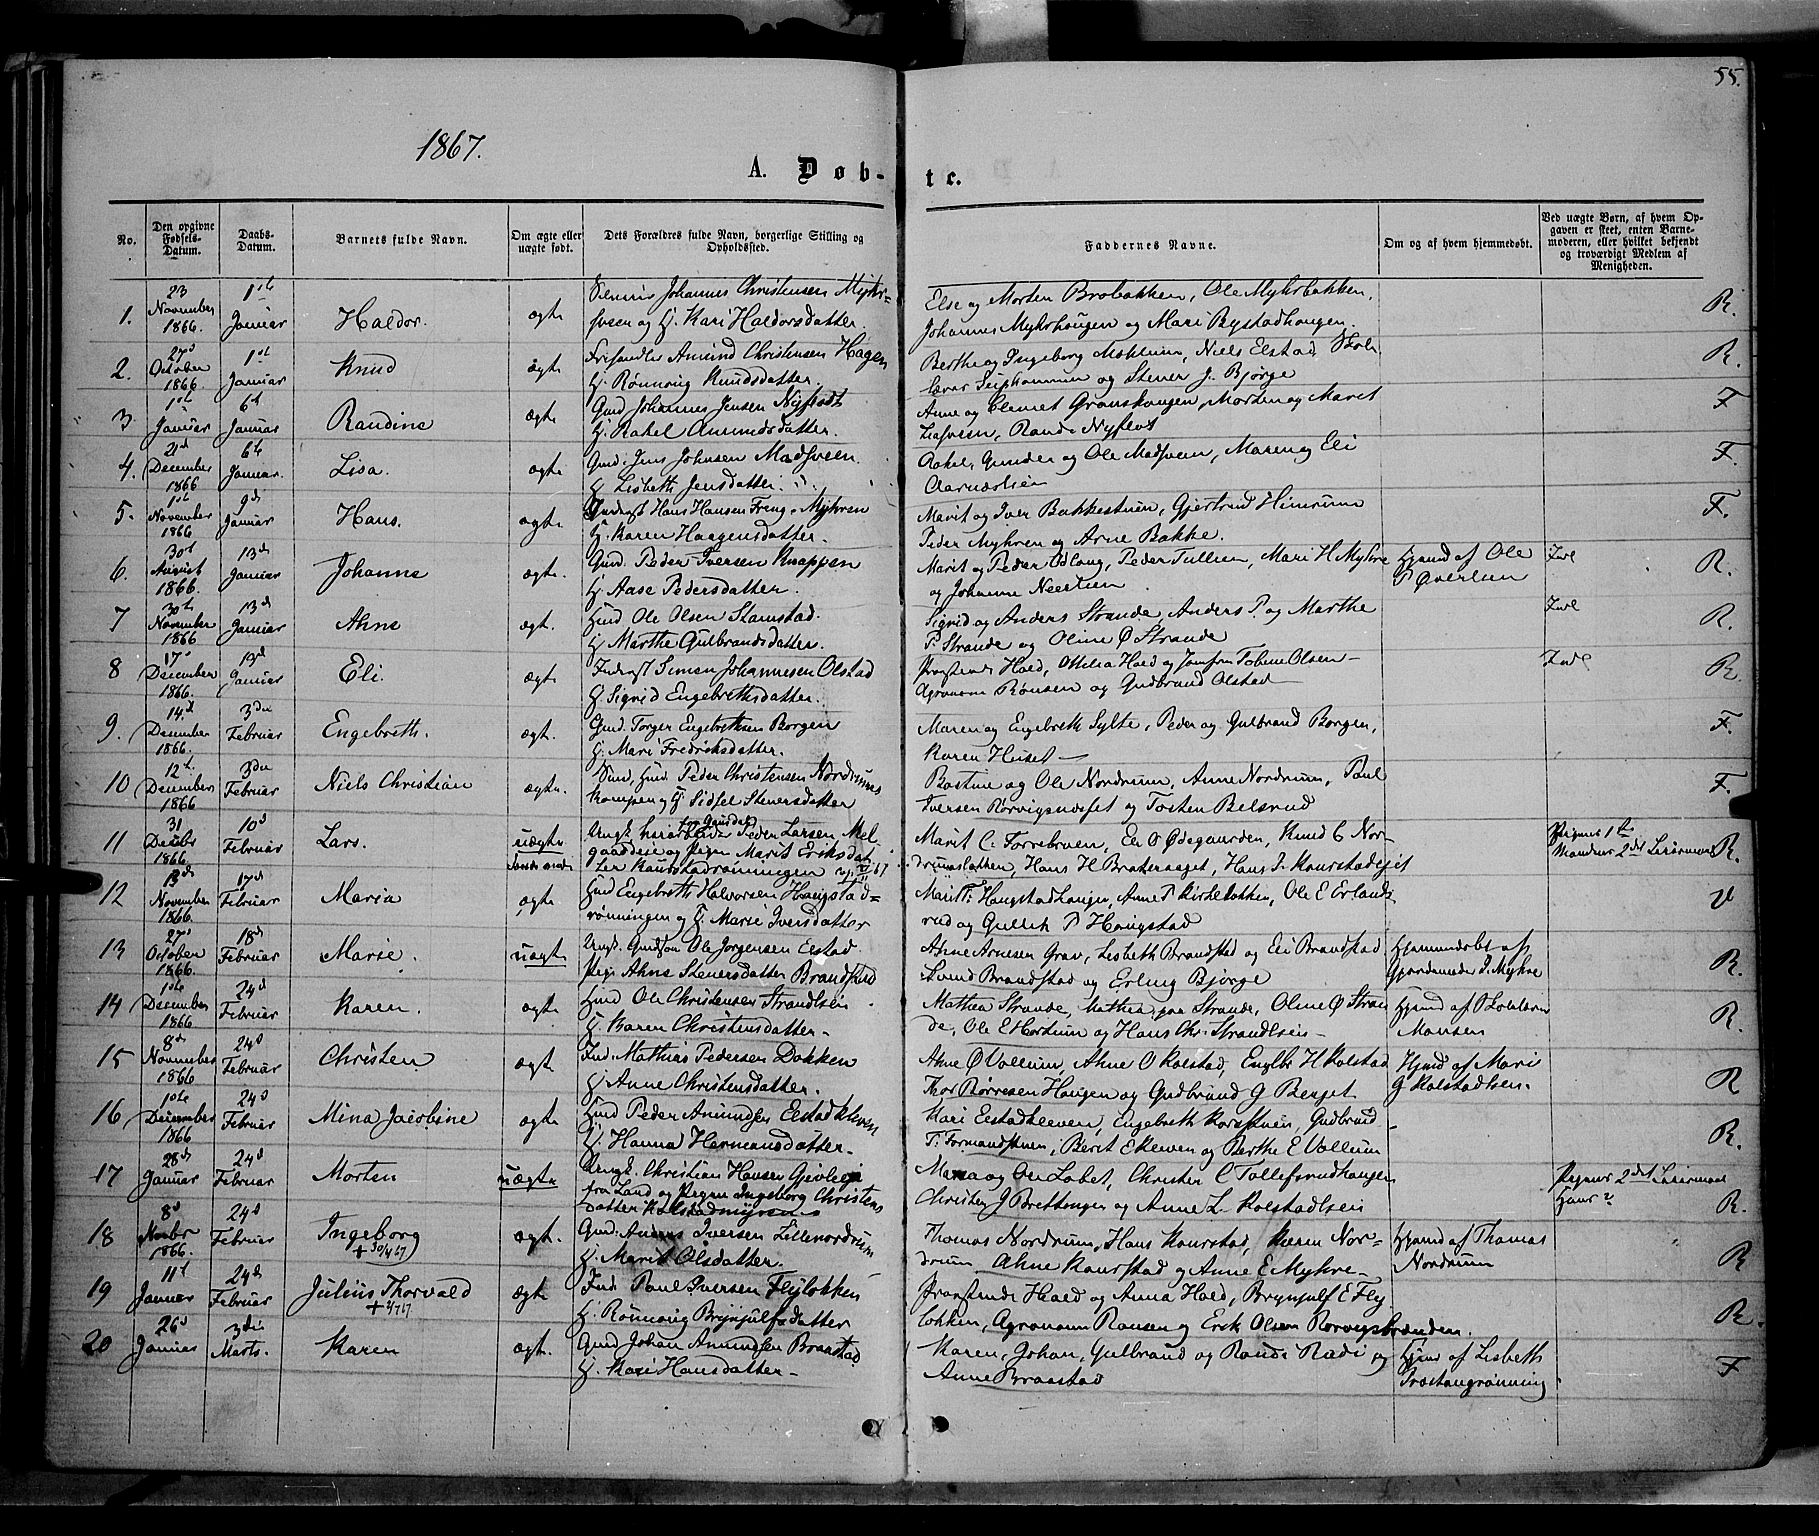 55.
1867.
A. Døb-te.
No.
Den opgivne Fødsels-Datum.
Daabs-Datum.
Barnets fulde Navn.
Om ægte eller uægte født.
Dets Forældres fulde Navn, borgerlige Stilling og Opholdssted.
Faddernes Navne.
Om og af hvem hjemmedøbt.
Ved uægte Børn, af hvem Opgaven er skeet, enten Barnemoderen, eller hvilket bekjendt og troværdigt Medlem af Menigheden.
1. 23 November 1866. 1ste Januar Haldor. ægte Johannes Christensen Myhrsveen og H. Kari Haldorsdatter. Else og Morten Brobakken, Ole Myhrbakken, Johannes Myhrhaugen og Mari Bystadhaugen. R.
2. 27d October 1866. 1st Januar Knud ægte Amund Christensen Hagen H. Rønnoug Knudsdatter. Berthe og Ingeborg Moklum, Niels Elstad og Stener J. Bjørge R.
3. 1st Januar 6t Januar Randine ægte Gmd Johannes Jensen Nyflødt H. Rakel Amundsdatter. Anne og Clemet Granshaugen, Morten og Marit Randi Nyfløt F
4. 21d December 1866 6te Januar. Lisa. ægte Gmd. Jens Johnsen Madsveen. H. Lisbeth Jensdatter. Gunder og Ole Madsveen, Maren og Eli F.
5. 1st November 1866 9d Januar Hans. ægte Inderst Hans Hansen Fryng Myhren H. Karen Haagensdatter. Marit og Iver Bakkestuen, Gjertrud Himrum Peder Myhren og Arne Bakke. F.
6. 30t August 1866. 13d Januar Johanne ægte. Gmd. Peder Iversen Knappen H. Aase Pedersdatter. Marit og Peder Odlong, Peder Tullien, Mari H. Myhre og Johanne Hjemd af Ole P Øverlien R.
7 30te November 1866 13d Januar Ahne ægt. Hmd Ole Olsen Stamstad. H Marthe Gulbrandsdatter. Sigrid og Anders Strande, Anders P. og Marthe P. Strande og Oline Ø Strande R.
8 17d December 1866. 13d Januar Eli. ægte Inderst Simen Johannesen Olstad H Sigrid Engebrethsdatter. Hald, Hald og Jomfru Tobine Olsen Agronom Ronsen og Gudbrand Olstad R.
9. 14d December 1866. 3die Februar Engebreth. ægt. Gmd. Torger Engebrethsen Borgen H. Mari Fredriksdatter. Maren og Engebreth Sylte, Peder og Gulbrand Borgen, Karen F.
10 12t December 1866 3die Februar Niels Christian ægte. Hmd. Peder Christensen Nordrumskampen og H. Sidsel Stenersdatter Bastine og Ole Nordrum, Anne Nordrum, Paul Iversen Rørvigsnæset og Tosten Belsrud F.
11 31 Decbr 1866 10d Februar Lars. uægte Ungk. Peder Larsen Melgaadeie og Pigen Marit Eriksdatter Marit C. Forrebruen, Eli O Ødegaarden, Knud C Nordrumsløkken, Hans H Brateraaget, Hans J. Kanstadejet Pigens 1te Mandens 2det Leiermaal R.
12 13de November 1866. 17d Februar Maria ægte Hmd Engebreth Halvorsen Haugstadrønningen og H. Marie Iversdatter Marit T. Haugstadhaugen, Anne P Kirkeløkken, Ole E Erlandsrud og Gullik P Haugstad V
13 27d October 1866. 18d Februar Marie. uægte Ungk. Ole Jørgensen Elstad Pige Ahne Stenersdatter Brandstad Ahne Arnesen Grav, Lisbeth Brandstad og Eli Brandstad Svend Brandstad og Erling Bjørge Hjemmedøbt af Gjordemoder J. Myhre R.
14 10de December 1866 24d Februar Karen. ægte Hmd Ole Christensen Strandlien H. Karen Christensdatter. Mathea Strande, Mathea paa Strande, Oline Ø Strande, Ole E Hortum og Hans Chr. Strandlien Hjemd af Monsen R.
15 8d November 1866 24d Februar Christen ægte Ind. Mathias Pedersen Dokken H Anne Christensdatter. Ahne Ø Vollum, Ahne O Kolstad, Englbr. H Kolstad Thor Børresen Haugen og Gudbrand G Berget Hjemd af Mari G Kolstadlien. R
16 10de December 1866 24d Februar Mina Jacobine ægte Hmd Peder Amundsen Elstadkleven H. Hanna Hermansdatter. Kari Elstadkleven, Engebreth Korsstuen, Gudbrand T. Formandstuen, Berit E Kleven og Berthe E Vollum R.
17 28de Januar 24d Februar Morten uægte Ungk. Christian Hansen Gjøvleie fra Land og Pigen Ingeborg Christensdatter Kolstadmyren og Ole Lobet, Christen C Tollefsrudhaugen Christen J Bretthaugen og Anne L. Kolstadlien Pigens 2det Leiermaal Hans ? R.
18 8d Novbr 1866. 24d Februar Ingeborg + 30/4 67 ægt. Gmd. Iversen Lillenordrum H. Marit Olsdatter. Thomas Nordrum, Hans Kanstad, Karen Nordrum, Ahne Kanstad og Anne E. Myhre Hjemd af Thomas Nordrum R
19 11t Januar 24d Februar Julius Thorvald ægte Ind. Paul Iversen Flyløkken H. Rønnoug Brynjulfsdatter Hald og Anna Hald, Brynjulf E Flyløkken, Agronom Ronsen og Erik Olsen Rørvigsbrænden. R.
20 26d Januar 3die Marts. Karen ægt. Gmd Johan Amundsen Braastad H. Kari Hansdatter. Karen, Johan, Gulbrand og Randi Radi og Anne Braastad Hjemd af Lisbeth Præstangrønning F